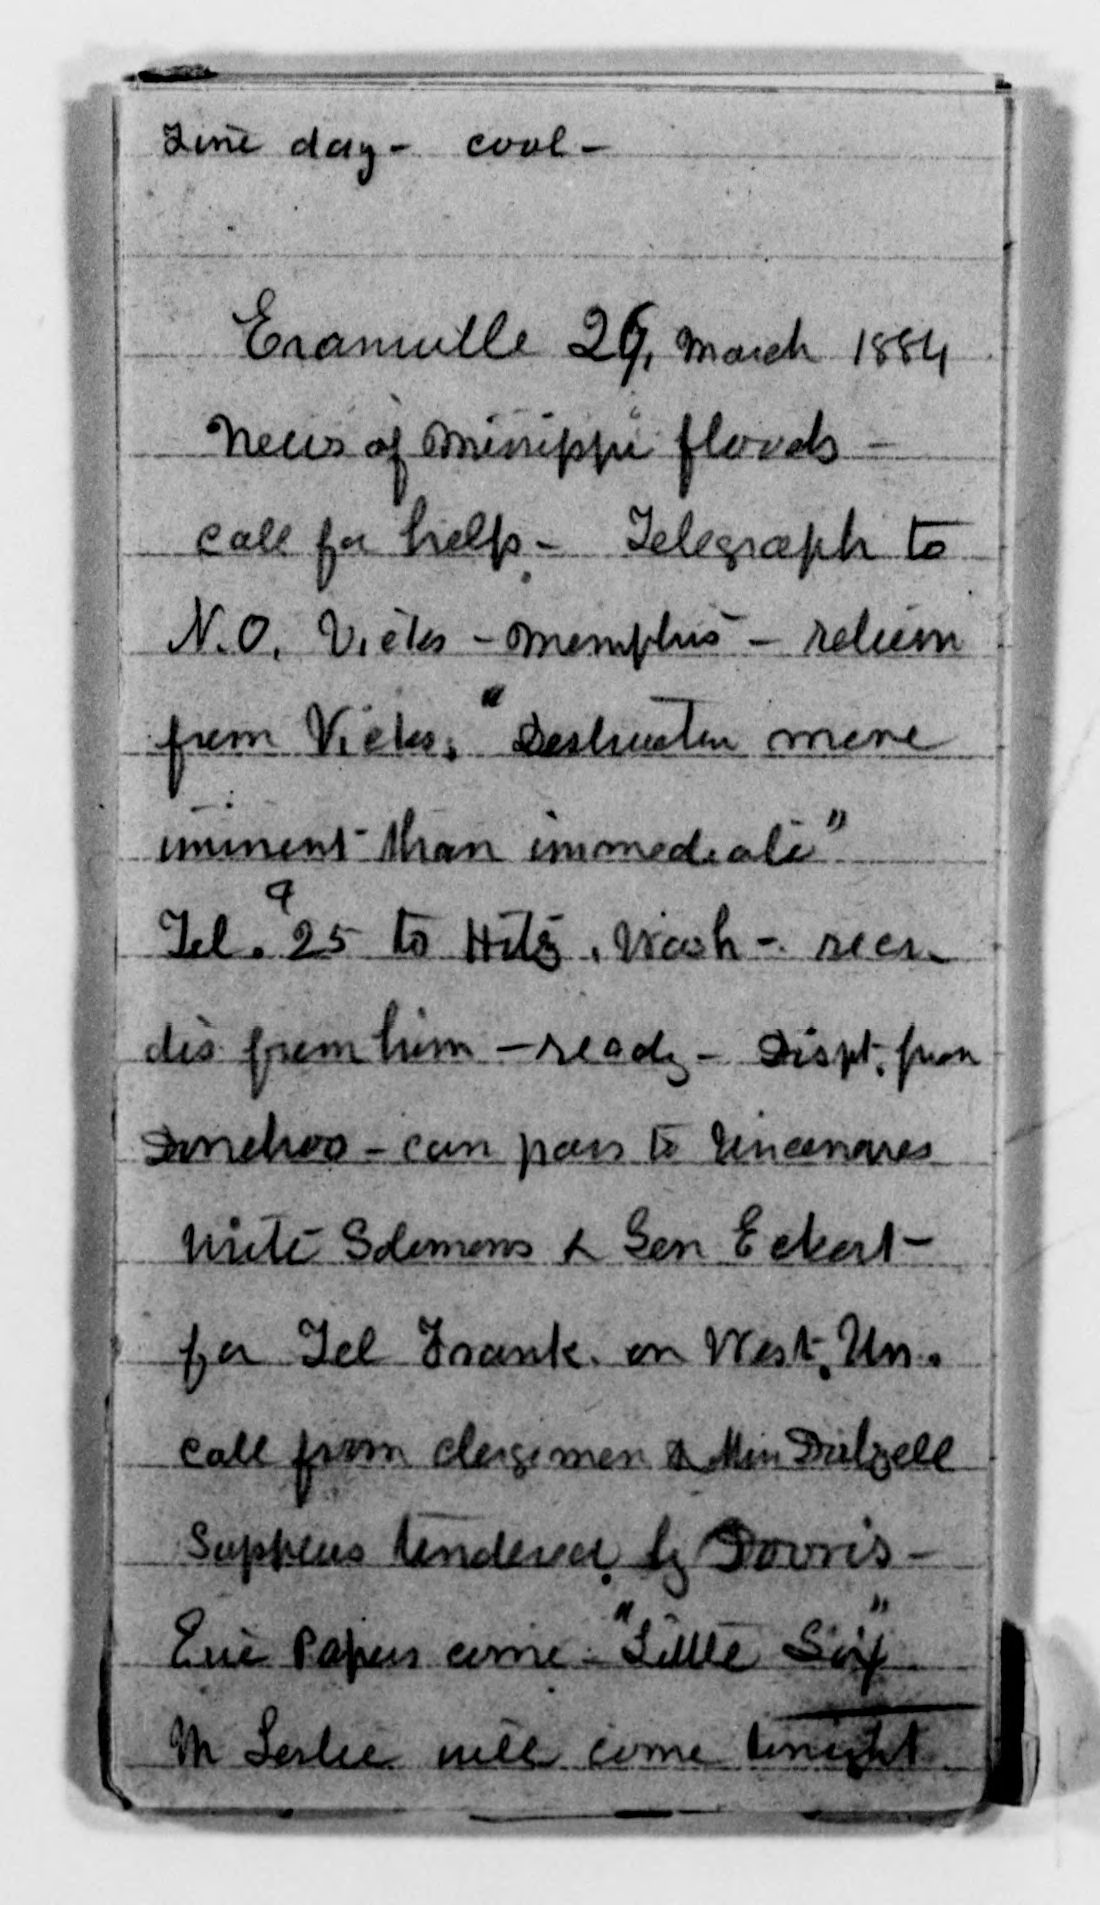 Fine day - cool -
Evansville 26, March 1884
News of Missippi floods -
call for help - Telegraph to
N.O. Vicks - Memphis - return
from Vicks. "Destruction more
iminent than immediate"
Tel. 9 25 to Hitz, Wash - recv.
dis from him - ready - Dispt. from
Donehoo - can pass to
Write Solomons & Gen Eckert -
for Tel Frank. on West. Un.
call from clergimen & Miss Dalzell
Supplies tendered by Dorris -
Erie Papers come - "Little Six"
M Leslie will come tonight